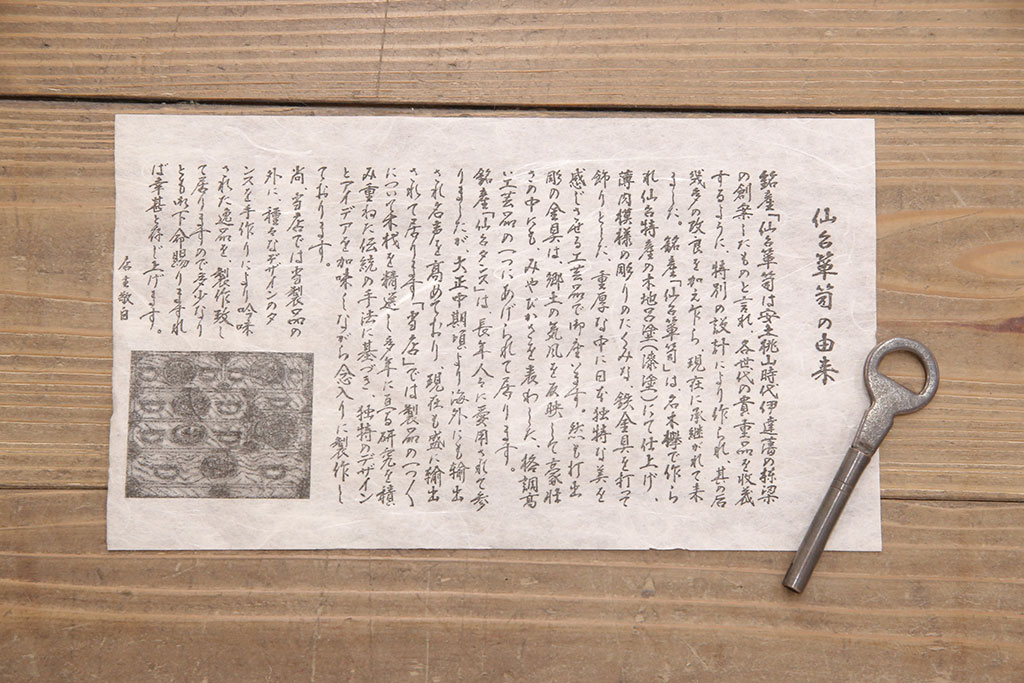 仙台箪笥の由来
銘産「仙台箪笥は安土桃山時代伊達藩の棟梁
の創案したものと言れ、各世代の貴重品を収蔵
するように、特別の設計により作られ、其の后
幾多の改良を加え乍ら、現在に承継がれて来
ました。銘産「仙台箪笥」は、名木欅で作ら
れ仙台特産の木地呂塗(漆塗)にて仕上げ、
薄肉模様の彫りのたくみな、鉄金具を打って
飾りとした、重厚な中に日本独特な美を
感じさせる工芸品で御座います。然も打出
彫の金具は、郷土の気風を反映して豪壮
さの中にも、みやびやかさを表わした、格調高
い工芸品の一つにあげられて居ります。
銘産「仙台タンス」は長年人々に愛用されて参
りましたが、大正中期頃より海外にも輸出
され名声を高めており、現在も盛に輸出
されて居ります。「当店」では製品の一つ一つ
について木材を精選し多年に亘る研究を積
み重ねた伝統の手法に基づき、独特のデザイン
とアイデアを加味しながら念入りに製作し
ております。
尚、当店では当製品の
外に、種々なデザインのタ
ンスを手作りにより吟味
された逸品を、製作致し
て居りますので多少なり
とも御下命賜りますれ
ば幸甚と存じ上げます。
店主敬白